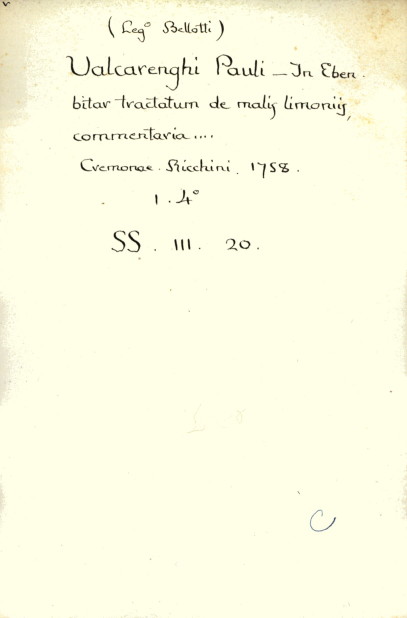 (Leg° Bellotti)
Valcarenghi Pauli — In Eben.
bitar tractatum de malis limoniis,
commentaria....
Cremonae. Ricchini. 1758.
1. 4°
SS. III. 20.
C